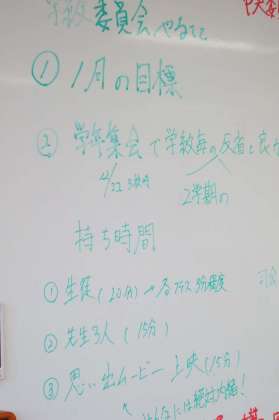 学級委員会 やること
① 1月の目標
② 学年集会で学級毎の反省と良か
12/22 3校時
2学期の
持ち時間
① 生徒(20分)→各クラス3分程度
② 先生3人(15分)
③ 思い出ムービー上映(15分)
↖ みんなには絶対内緒!